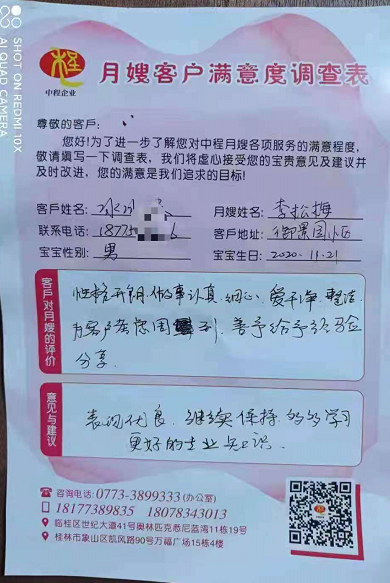 SHOT ON REDMI 10X
AI QUAD CAMERA
中程企业
月嫂客户满意度调查表
尊敬的客户：
您好!为了进一步了解您对中程月嫂各项服务的满意程度，
敬请填写一下调查表，我们将虚心接受您的宝贵意见及建议并
及时改进，您的满意是我们追求的目标!
客户姓名：
月嫂姓名：李松梅
联系电话：1877 6
客户地址：御景园小区
宝宝性别：男
宝宝生日：2020.11.21
客户对月嫂的评价
性格开朗，做事认真，细心，爱干净，整洁
为客户考虑周到，善于给予经验
分享.
意见与建议
表现优良，继续保持，多多学习
更好的专业知识.
咨询电话：0773-3899333(办公室)
18177389835 18078343013
临桂区世纪大道41号奥林匹克悉尼蓝湾11栋19号
桂林市象山区凯风路90号万福广场15栋4楼